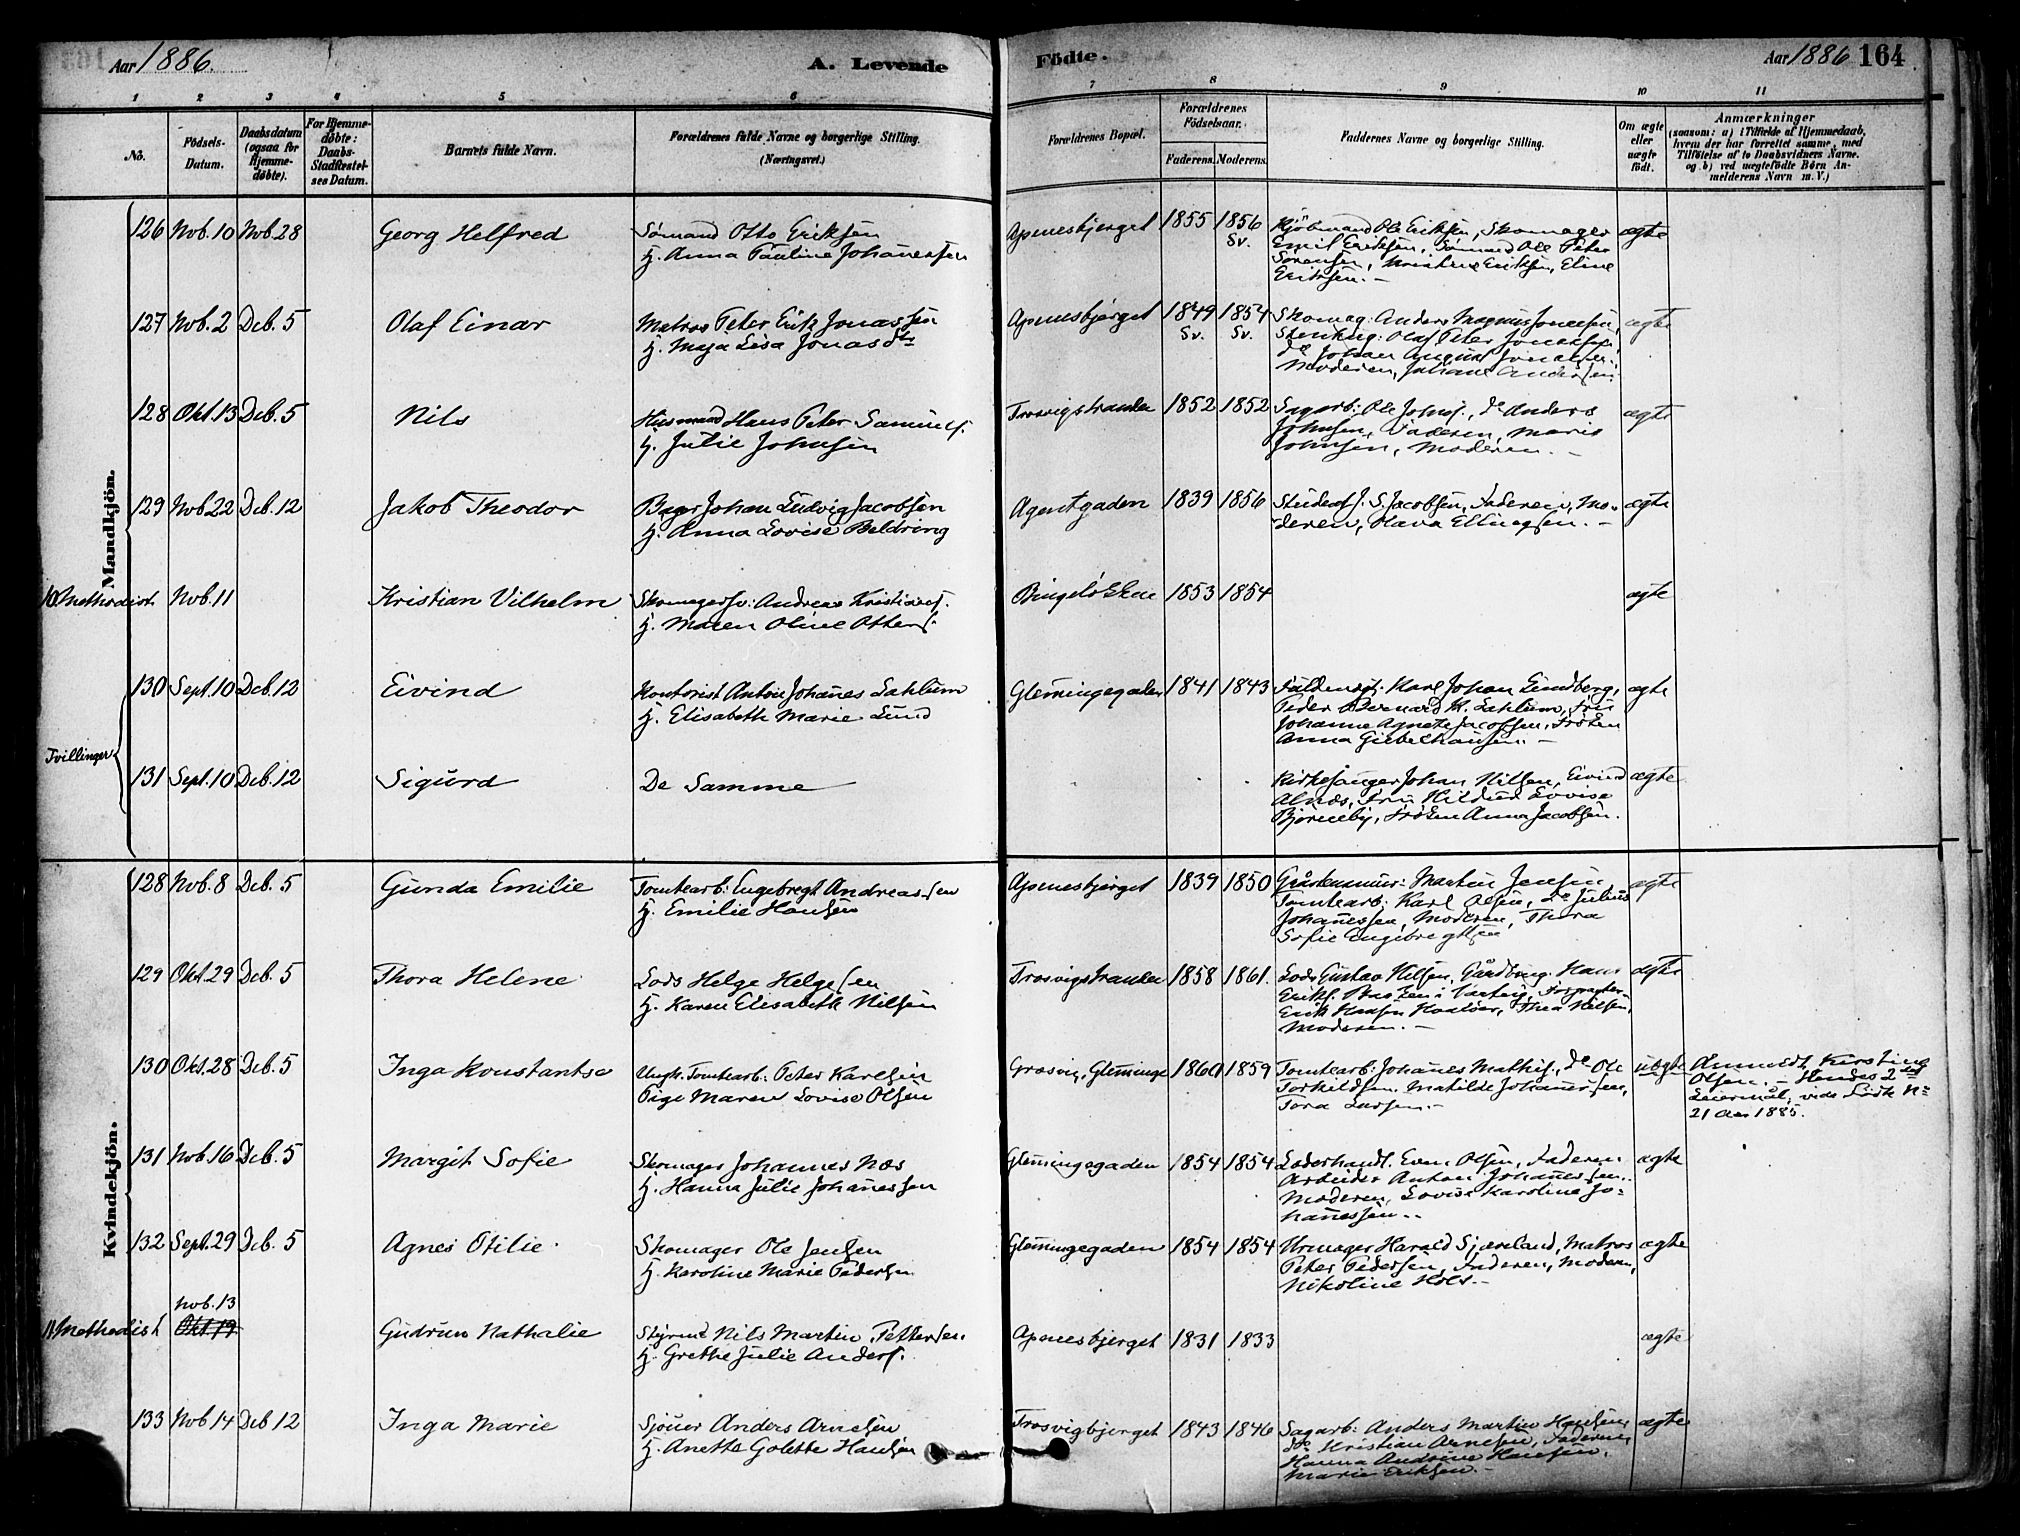 Aar 1886.
A. Levende
Födte.
Aar 1886 164
1 2 3 4 5 6 7 8 9 10 11
No.
Födsels-Datum.
Daabsdatum (ogsaa for Hjemme-döbte).
For Hjemme-döbte: Daabs-Stadfæstel-ses Datum.
Barnets fulde Navn.
Forældrenes fulde Navne og borgerlige Stilling.
(Næringsvei.)
Forældrenes Bopæl.
Forældrenes Födselsaar.
Faderens. Moderens.
Faddernes Navne og borgerlige Stilling.
Om ægte eller uægte födt.
Anmærkninger
(saasom: a) i Tilfælde af Hjemmedaab,
hvem der har forrettet samme, med
Tilföielse af to Daabsvidners Navne.
og b) ved uægtefödte Börn An-
melderens Navn m. V.)
Mandkjön.
126 Nov. 10 Nov. 28 Georg Helfred Sømand Otto Eriksen Apenesbjerget 1855 1856 Kjöbmand Ole Eriksen, Skomager ægte
H. Anna Pauline Johanessen Sv. Emil Eriksen, Sømand Ole Peter
Sørensen, Kristine Eriksen, Eline
Eriksen. -
127 Nov. 2 Deb. 5 Olaf Einar Matros Peter Erik Jonassen Apenesbjerget 1849 1854 Skomag: Anders Magnus Jonesen, ægte
H. Maja Lisa Jonasdtr Sv. Sv. Stenhug: Olaf Peter
do Johan August
Moderen, Juliane Andersen.
128 Okt. 13 Deb. 5 Nils Husmand Hans Peter Samuels. Trosvigstranden 1852 1852 Sagarb: Ole Johns., do Anders ægte
H. Julie Johnsen Johnsen, Faderen, Marie
Johnsen, Moderen. -
129 Nov 22 Deb. 12 Jakob Theodor Bager Johan Ludvig Jacobsen Agentgaden 1839 1856 Student J. S. Jacobsen, Faderen, Mo- ægte
H. Anna Lovise Beldring deren, Olava Ellingsen. -
10. Methodist. Nov. 11 Kristian Vilhelm Skomagersv: Andreas Kristians. Bingeløkken 1853 1854 ægte
H. Maren Oline Otters.
Tvillinger
130 Sept. 10 Deb. 12 Eivind Kontorist Anton Johanes Sahlum Glemmingegaden 1841 1843 Karl Johan Lindberg, ægte
H. Elisabeth Marie Lund Peder Bernard K. Sahlum, Fru
Johanne Agnete Jacobsen, Frøken
Anna Giebelhausen. -
131 Sept. 10 Deb. 12 Sigurd De Samme Kirkesanger Johan Nilsen, Eivind ægte
Alnæs, Fru Hildur Lovise
Bjørneby, Frøken Anna Jacobsen.
Kvindekjön.
128 Nov. 8 Deb. 5 Gunda Emilie Tomtearb: Engebregt Andreassen Apenesbjerget 1839 1850 Gråstensmur: Martin Jensen ægte
H. Emilie Hansen Tomtearb: Karl Olsen, do Julius
Johanessen, Moderen, Thora
Sofie Engebregtsen
129 Okt. 29 Deb. 5 Thora Helene Lods Helge Helgesen Trosvigstranden 1858 1861. Lods Gustav Nilsen, Gårdbrug. Hans ægte
H. Karen Elisabeth Nilsen Eriks. Forpagter
Erik Hansen Hvaløer, Thea Nilsen,
Moderen. -
130 Okt. 28 Deb. 5 Inga Konstantse Ungk. Tomtearb: Peter Karlsen Grosvig, Glemminge 1860 1859 Tomtearb. Johanes Mathis., do Ole uægte Anmeldt, Kirstine
Pige Maren Lovise Olsen Torkildsen, Matilde Johannessen, Olsen. - Hendes 2det
Tora Larsen. - Leiermål, vide Födte No
21 Aar 1885.
131 Nov. 16 Deb. 5 Margit Sofie Skomager Johannes Næs Glemmingegaden 1854 1854 Læderhandl. Even Olsen, Faderen ægte
H. Hanna Julie Johanessen Arbeider Anton Johanessen,
Moderen, Lovise Karoline Jo-
hanessen..
132 Sept. 29 Deb. 5 Agnes Otilie. Skomager Ole Jensen Glemmingegaden 1854 1854 Urmager Harald Sjæreland, Matros ægte
H. Karoline Marie Pedersen Peter Pedersen, Faderen, Moderen,
Nikoline Hols. -
Nov. 13
11. Methodist Okt 19 Gudrun Nathalie Styrmd Nils Martin Pettersen. Apenesbjerget 1831 1833 ægte
H. Grethe Julie Anders.
133 Nov 14 Deb 12 Inga Marie Sjöuer Anders Arnesen Trosvigbjerget 1843 1846 Sagarb: Anders Martin Hansen, ægte
H. Anette Golette Hansen do Kristian Arnesen, Faderen,
Hanna Andrine Hansen,
Marie Eriksen. -